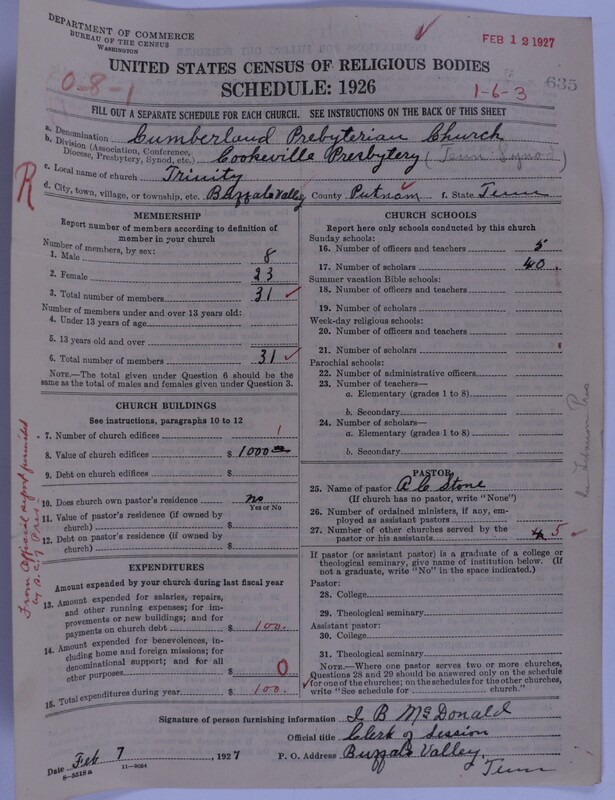 DEPARTMENT OF COMMERCE
BUREAU OF THE CENSUS
WASHINGTON
FEB 12 1927
UNITED STATES CENSUS OF RELIGIOUS BODIES
SCHEDULE: 1926
635
0-8-1
1-6-3
FILL OUT A SEPARATE SCHEDULE FOR EACH CHURCH. SEE INSTRUCTIONS ON THE BACK OF THIS SHEET
a. Denomination Cumberland Presbyterian Church
b. Division (Association, Conference, Diocese, Presbytery, Synod, etc.) Cookeville Presbytery (Tenn Synod)
c. Local name of church Trinity
R
d. City, town, village, or township, etc. Buffalo Valley County Putnam f. State Tenn
MEMBERSHIP
Report number of members according to definition of
member in your church
Number of members, by sex:
1. Male 8
2. Female 23
3. Total number of members 31
Number of members under and over 13 years old:
4. Under 13 years of age
5. 13 years old and over
6. Total number of members 31
NOTE.—The total given under Question 6 should be the
same as the total of males and females given under Question 3.
CHURCH BUILDINGS
See instructions, paragraphs 10 to 12
7. Number of church edifices 1
8. Value of church edifices $ 1000 00
9. Debt on church edifices $
10. Does church own pastor's residence no
Yes or No
11. Value of pastor's residence (if owned by
church) $
12. Debt on pastor's residence (if owned by
church) $
From Official report furnished
EXPENDITURES
Amount expended by your church during last fiscal year
13. Amount expended for salaries, repairs,
and other running expenses; for im-
provements or new buildings; and for
payments on church debt $ 100.
14. Amount expended for benevolences, in-
cluding home and foreign missions; for
denominational support; and for all
other purposes $ 0
15. Total expenditures during year $ 100.
CHURCH SCHOOLS
Report here only schools conducted by this church
Sunday schools:
16. Number of officers and teachers 5
17. Number of scholars 40.
Summer vacation Bible schools:
18. Number of officers and teachers
19. Number of scholars
Week-day religious schools:
20. Number of officers and teachers
21. Number of scholars
Parochial schools:
22. Number of administrative officers
23. Number of teachers—
a. Elementary (grades 1 to 8)
b. Secondary
24. Number of scholars—
a. Elementary (grades 1 to 8)
b. Secondary
PASTOR
25. Name of pastor R. C. Stone
(If church has no pastor, write "None")
26. Number of ordained ministers, if any, em-
ployed as assistant pastors
27. Number of other churches served by the
pastor or his assistants 5
If pastor (or assistant pastor) is a graduate of a college or
theological seminary, give name of institution below. (If
not a graduate, write "No" in the space indicated.)
Pastor:
28. College
29. Theological seminary
Assistant pastor:
30. College
31. Theological seminary
NOTE.—Where one pastor serves two or more churches,
Questions 28 and 29 should be answered only on the schedule
for one of the churches; on the schedules for the other churches,
write "See schedule for church."
Signature of person furnishing information J B McDonald
Official title Clerk of Session
Date Feb 7 1927 P. O. Address Buffalo Valley
Tenn
8-5518a 11-9054